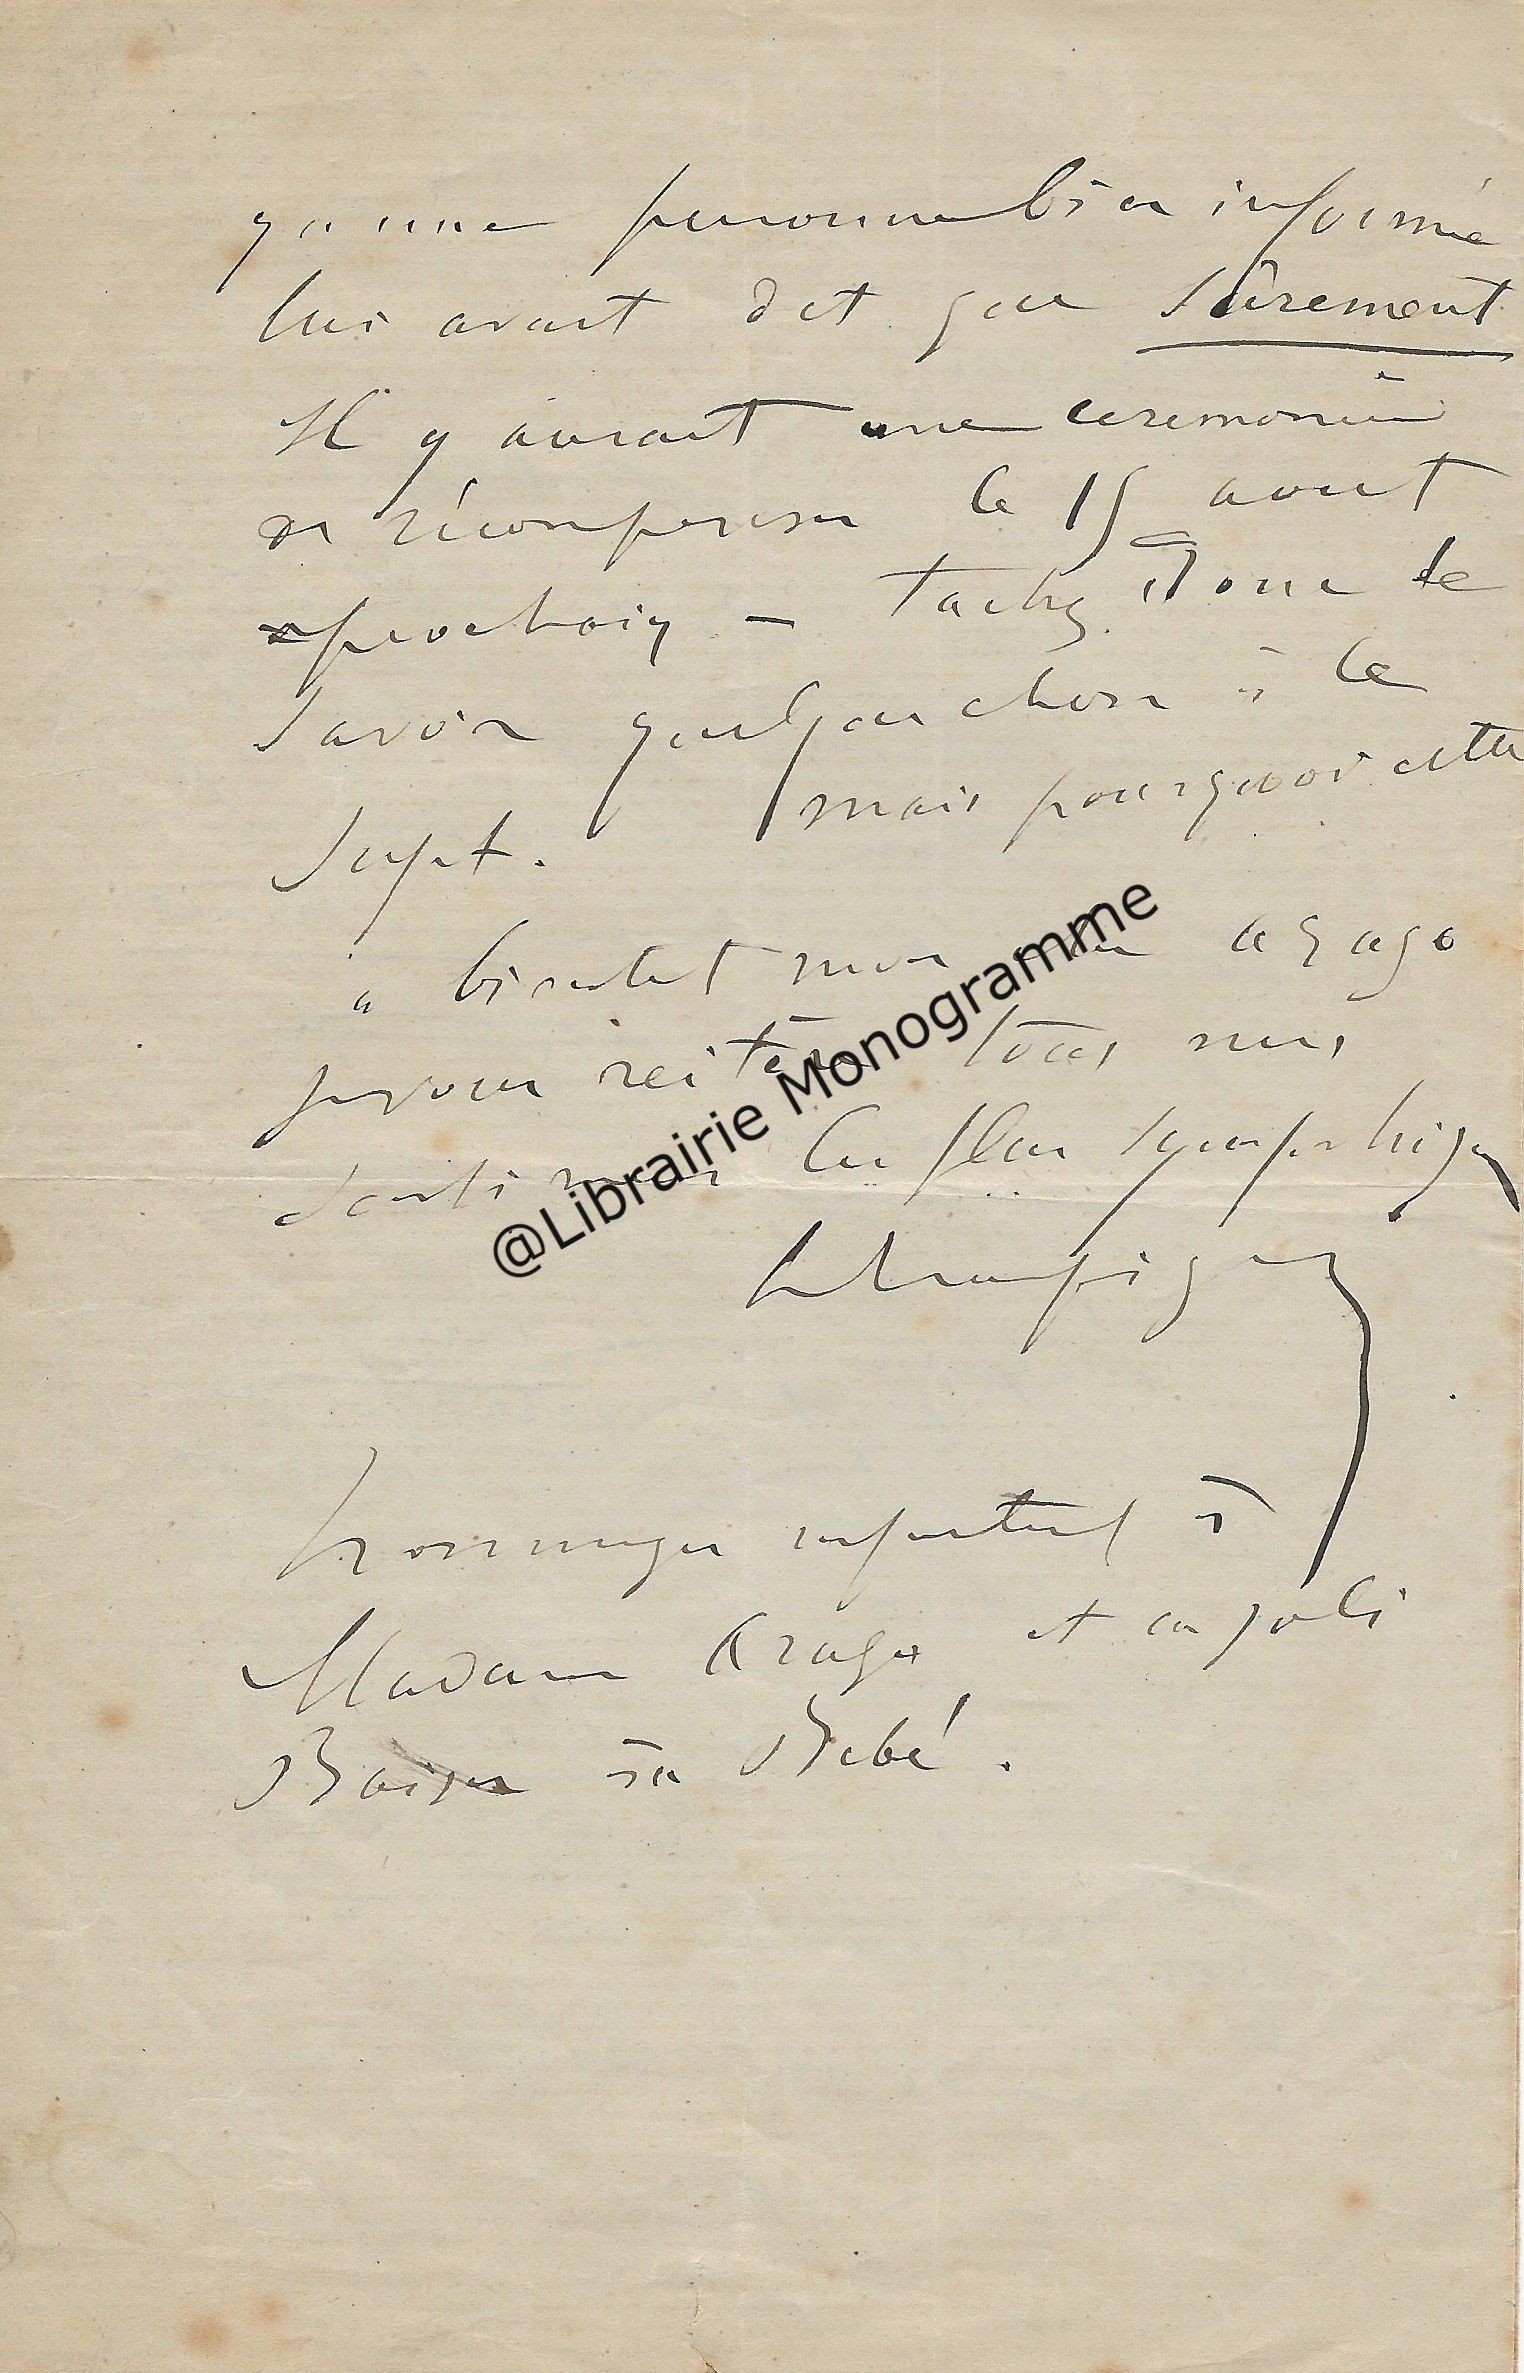 qu'une personne bien informée
lui avait dit que sûrement
Il y aurait une ceremonie
de récompenses le 15 aout
prochain – tachez donc de
savoir quelque chose à ce
sujet. mais pourquoi cette
à bientot mon cher arago
je vous reitère tous mes
sentiments les plus sympathiques
hommages respectueux à
Madame Arago et un joli
Baiser à Bébé.
@Librairie Monogramme